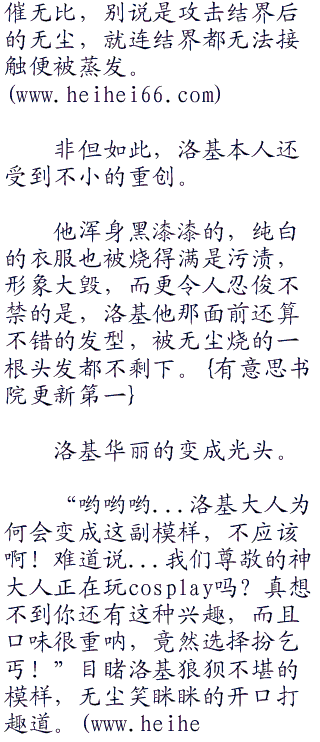 催无比，别说是攻击结界后
的无尘，就连结界都无法接
触便被蒸发。
(www.heihei66.com)
非但如此，洛基本人还
受到不小的重创。
他浑身黑漆漆的，纯白
的衣服也被烧得满是污渍，
形象大毁，而更令人忍俊不
禁的是，洛基他那面前还算
不错的发型，被无尘烧的一
根头发都不剩下。{有意思书
院更新第一}
洛基华丽的变成光头。
“哟哟哟...洛基大人为
何会变成这副模样，不应该
啊！难道说...我们尊敬的神
大人正在玩cosplay吗？真想
不到你还有这种兴趣，而且
口味很重呐，竟然选择扮乞
丐！”目睹洛基狼狈不堪的
模样，无尘笑眯眯的开口打
趣道。(www.heihe